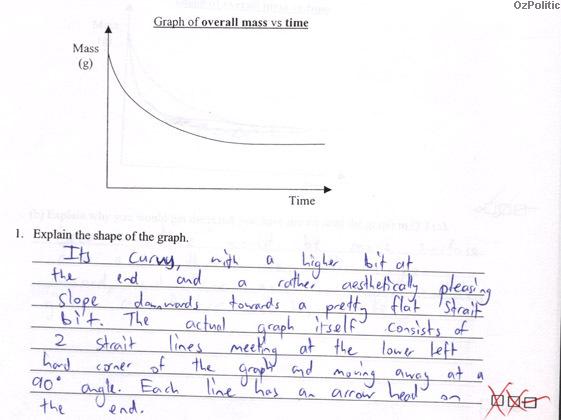 OzPolitic
Graph of overall mass vs time
Mass
(g)
Time
1. Explain the shape of the graph.
Its curvy, with a higher bit at
the end and a rather aesthetically pleasing
slope downwards towards a pretty flat strait
bit. The actual graph itself consists of
2 strait lines meeting at the lower left
hand corner of the graph and moving away at a
90° angle. Each line has an arrow head on
the end.